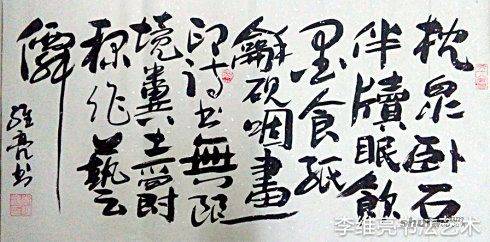 枕泉卧石
伴牘眠飲
墨食紙
龢硯咽畫
印詩書無限
境糞土爵
禄作藝
僊
維亮书
李维亮书法艺术